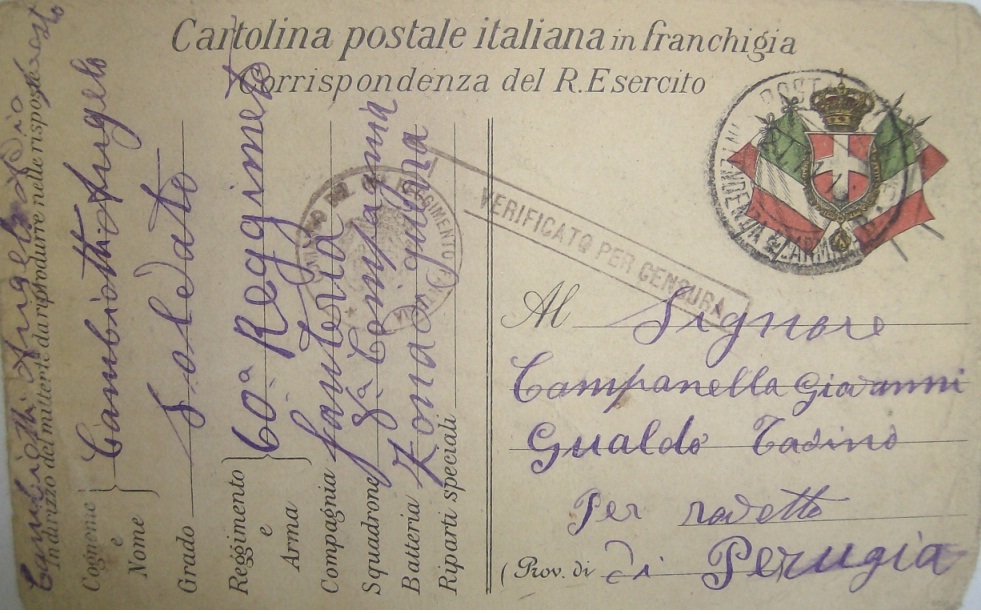 Cartolina postale italiana in franchigia
Corrispondenza del R. Esercito
Indirizzo del mittente da riprodurre nella risposta
Cambiotti Angelo
Cognome e Nome } Cambiotti Angelo
Grado Soldato
Reggimento e Arma } 60ª Reggimento
Compagnia fanteria
Squadrone 8ª Compagnia
Batteria Zona di guerra
Riparti speciali
VERIFICATO PER CENSURA
POSTA
INTENDENZA
REGGIMENTO
Al Signore
Campanella Giovanni
Gualdo Tadino
Per
(Prov. di di Perugia